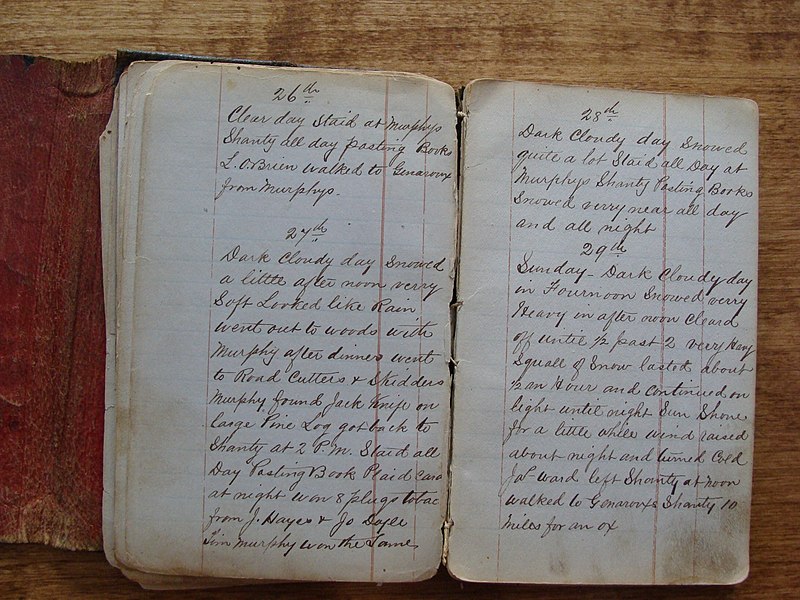 26th
Clear day Staid at Murphys
Shanty all day pasting Books
L. O.Brien walked to Genaroux
from Murphys.
27th
Dark Cloudy day Snowed
a little after noon verry
Soft Looked like Rain
went out to woods with
Murphy after dinner went
to Road Cutters & Skidders
Murphy found Jack Knife on
Large Pine Log got back to
Shanty at 2 P.M. Staid all
Day Pasting Book Plaid Card
at night won 8 plugs tobac
from J. Hayes & Jo Doyle
Tim Murphy won the Same
28th
Dark Cloudy day Snowed
quite a lot Staid all Day at
Murphys Shanty Pasting Books
Snowed verry near all day
and all night
29th
Sunday - Dark Cloudy day
in Fournoon Snowed verry
Heavy in after noon Cleard
off until ½ past 2 verry
Squall of Snow lasted about
½ an Hour and Continued on
light until night Sun Shone
for a little while wind raised
about night and turned Cold
Jas ward left Shanty at noon
walked to Genarouxs Shanty 10
miles for an ox